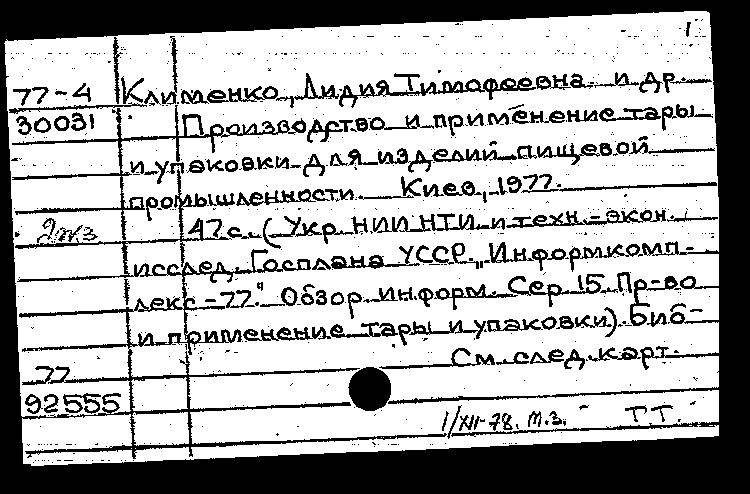 1
77-4 Клименко, Лидия Тимофеевна и др.
30031 Производство и применение тары
и упаковки для изделий пищевой
промышленности. Киев, 1977.
2экз 47 с. (Укр. НИИ НТИ и техн.-экон.
исслед. Госплана УССР. „Информкомп-
лекс-77." Обзор. информ. Сер. 15. Пр-во
и применение тары и упаковки). Биб-
77 См. след. карт.
92555
1/XII-78. М.З. Т.Т.